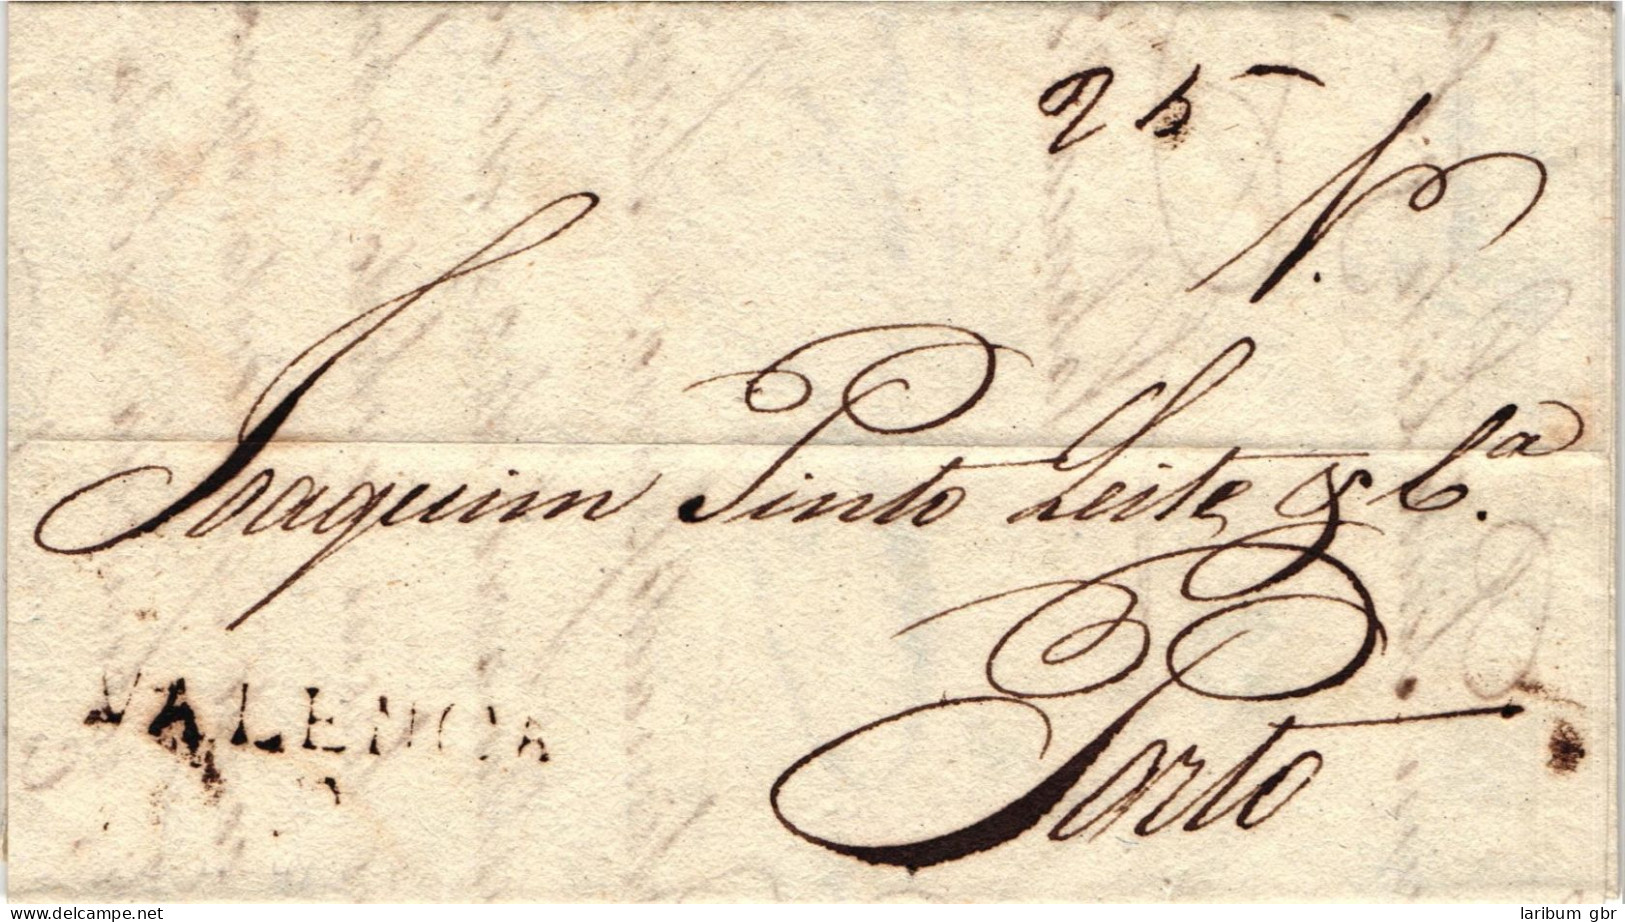 25
N.
Joaquim Pinto Leite & Cª.
Porto
VALENCIA
www.delcampe.net
laribum gbr